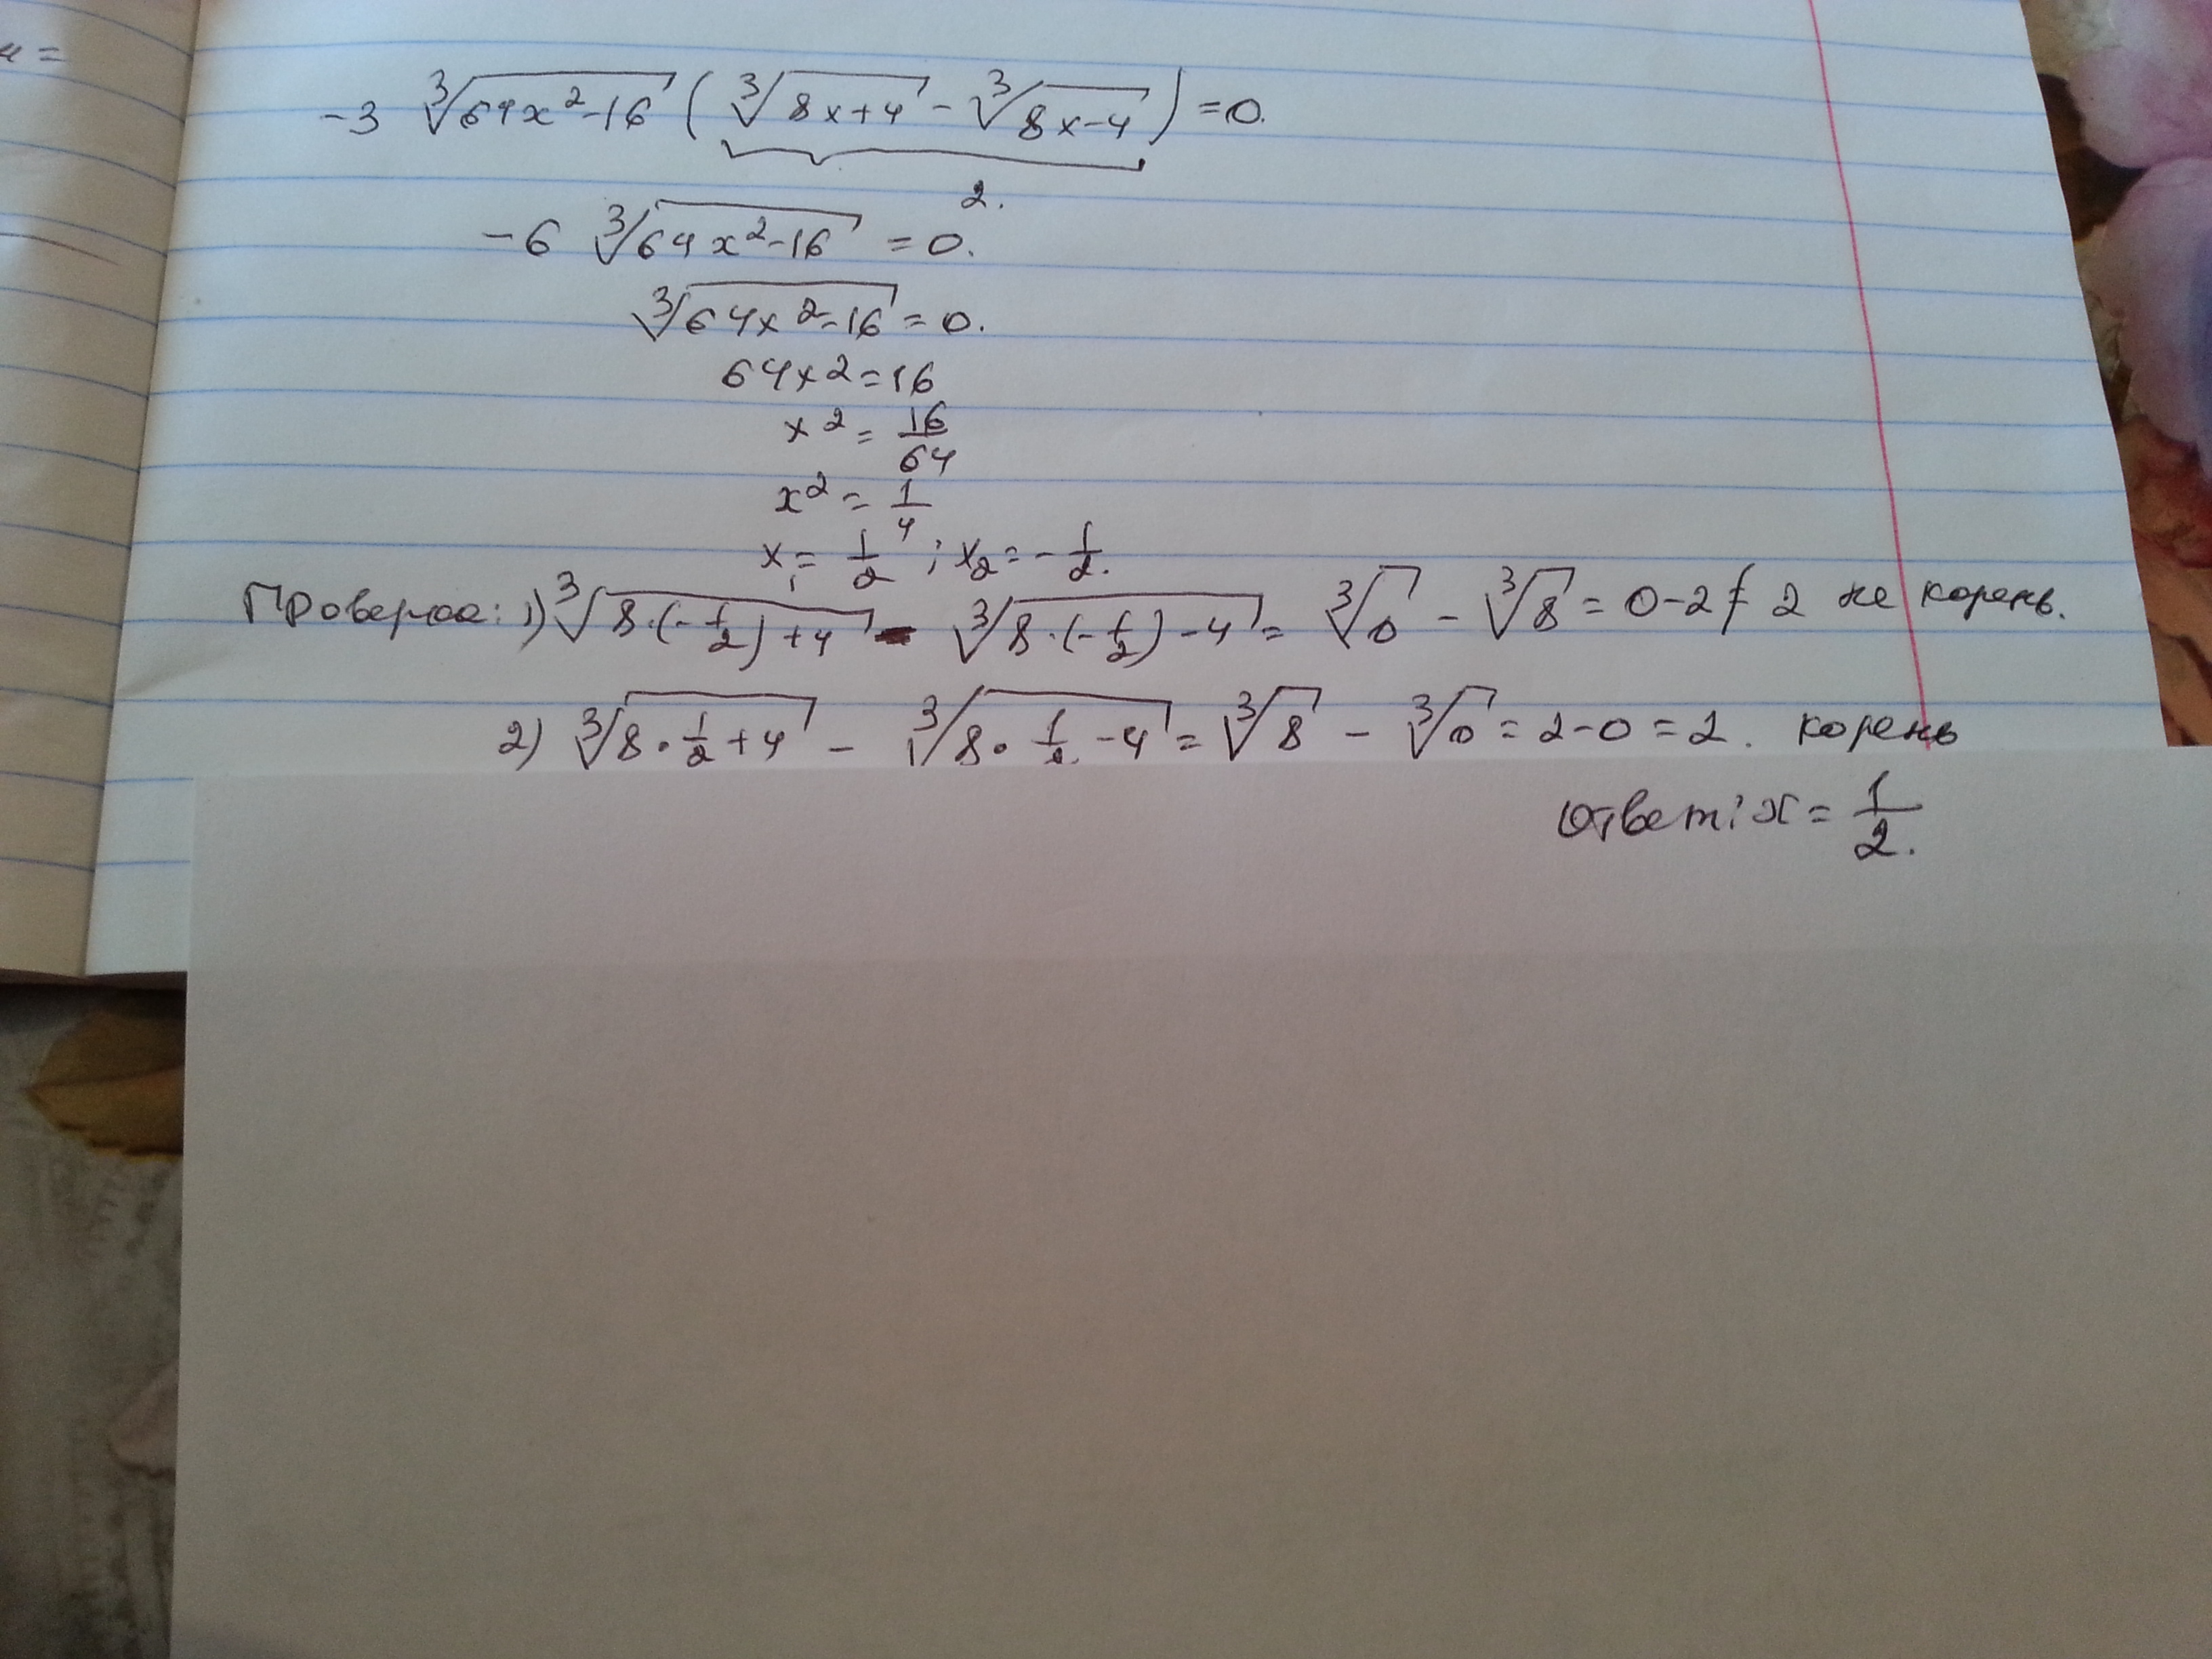 и =
-3 ∛(64x²-16) (∛(8x+4) - ∛(8x-4)) = 0.
2.
-6 ∛(64x²-16) = 0.
∛(64x²-16) = 0.
64x2 = 16
x² = 16/64
x² = 1/4
x₁ = 1/2 ; x₂ = -1/2.
Проверка: 1) ∛(8·(-1/2)+4) - ∛(8·(-1/2)-4) = ∛0 - ∛8 = 0-2 ≠ 2 не корень.
2) ∛(8·1/2+4) - ∛(8·1/2-4) = ∛8 - ∛0 = 2-0 = 2. корень
Ответ: x = 1/2.